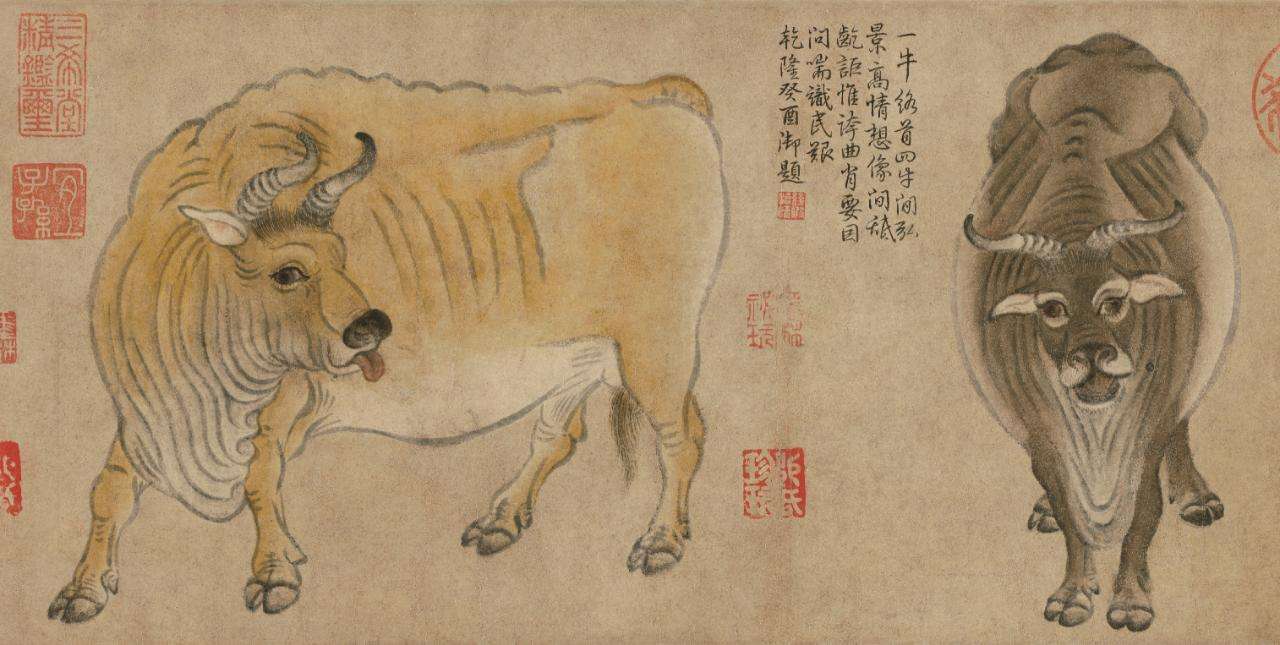 一牛絡首四牛間弘
景高情想像間舐
齕詎惟誇曲肖要因
問喘識民艱
乾隆癸酉御題
三希堂
精鑑璽
宜
子孫